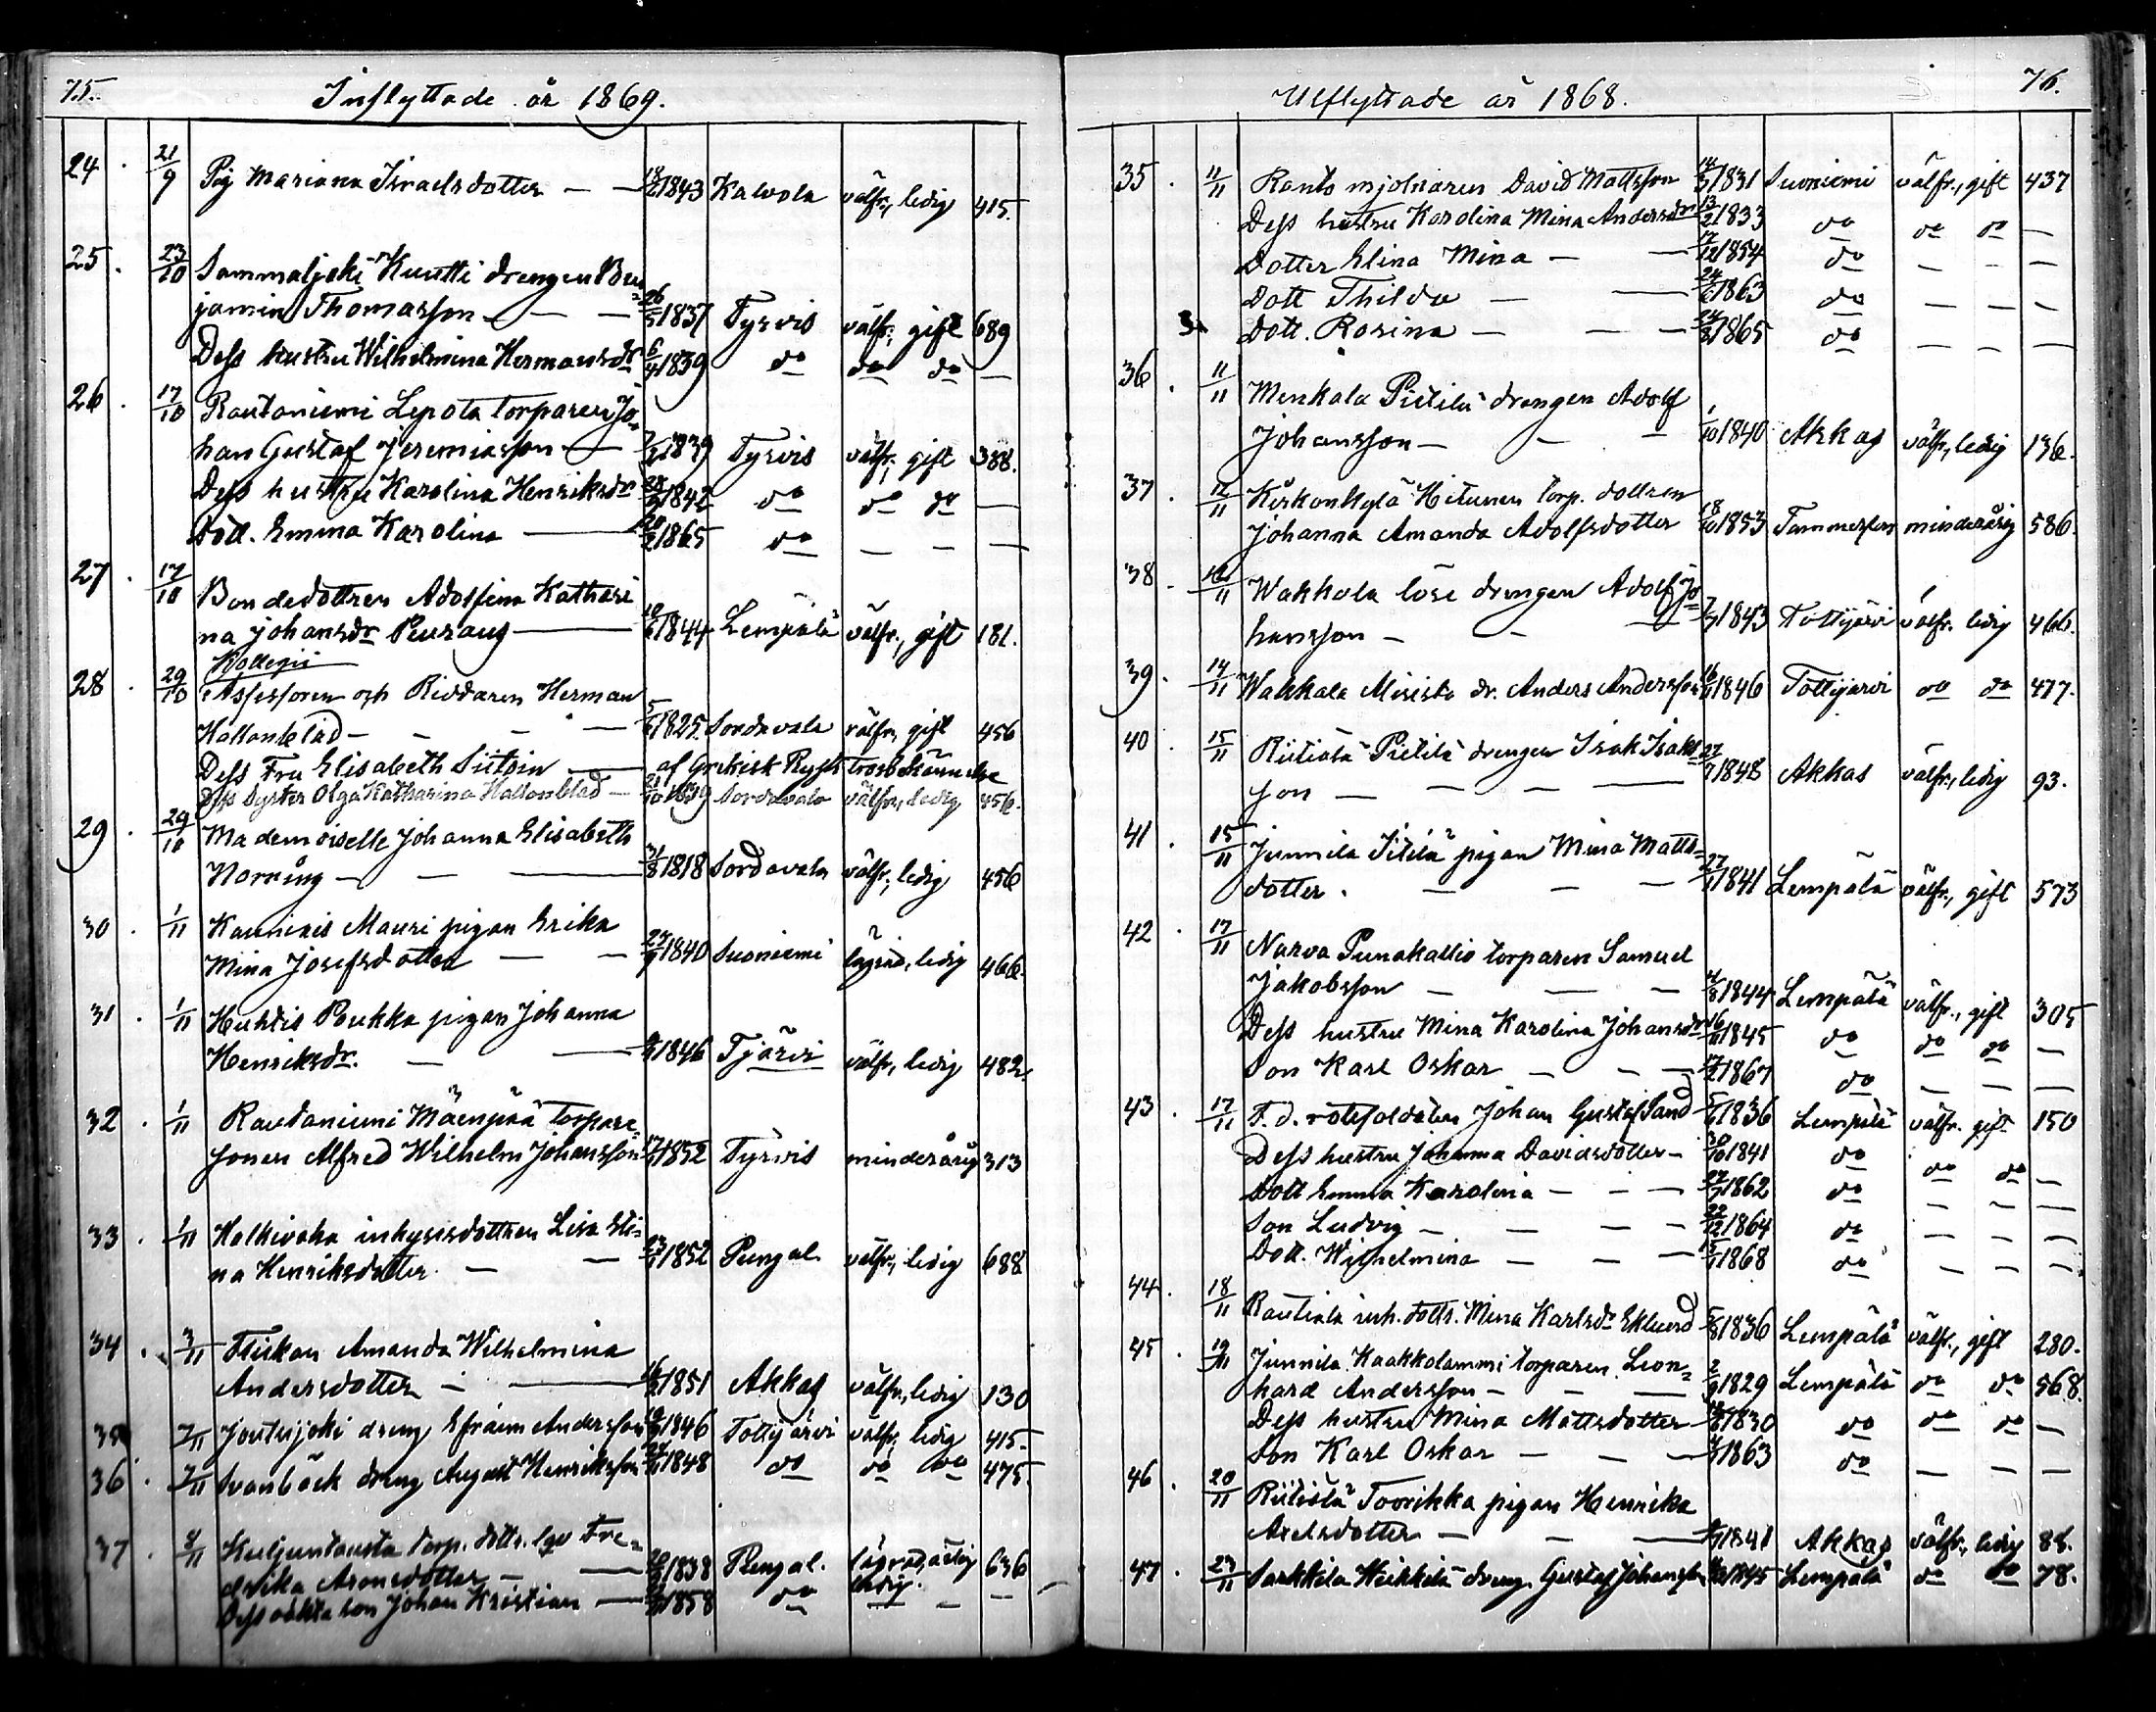 75.
Inflyttade år 1869.
24 . 21/9 Pig Mariana Israelsdotter — — 1843 Kalvola välfr., ledig 415.
25 . 23/10 Sammaljoki Kuutti drengen Ben=
jamin Thomasson — — 26/5 1837 Tyrvis välfr., gift 689
Dess hustru Wilhelmina Hermansdr 6/4 1839 do do do —
26 . 17/10 Rautaniemi Lepola torparen Jo=
han Gustaf Jeremiasson — 1839 Tyrvis välfr., gift 388.
Dess hustru Karolina Henriksdr 1842 do do do —
Dott. Emma Karolina — 1865 do — — —
27 . 17/10 Bondedottren Adolfina Kathari
na Johansdr Puraus — 1844 Lempälä välfr., gift 181.
Kollegii
28 . 29/10 Assessoren och Riddaren Herman
Hallonblad — — — 5/6 1825. Sordavala välfr., gift 456
Dess Fru Elisabeth Siitoin — af Grekisk Rysk trosbekännelse
Dess Syster Olga Katharina Hallonblad — 1839 Sordavala välfr., ledig 456.
29 . 29/10 Mademoiselle Johanna Elisabeth
Norring — — — 31/8 1818 Sordavala välfr., ledig 456
30 . 1/11 Kauniais Mauri pigan Erika
Mina Josefsdotter — — 1840 Suoniemi lägrad, ledig 466.
31 . 1/11 Huhtis Poukka pigan Johanna
Henriksdr. — — 1846 Tjärvi välfr., ledig 482.
32 . 1/11 Rautaniemi Mäenpää torpare=
sonen Alfred Wilhelm Johansson 1852 Tyrvis minderårig 313
33 . 1/11 Halkivaha inhysisdottren Lisa Eli=
na Henriksdotter — — 1852 Pungal. välfr., ledig 688
34 . 3/11 Flickan Amanda Wilhelmina
Andersdotter — — 1851 Akkas välfr., ledig 130
35 7/11 Joutsijoki dreng Efraim Andersson 1846 Tottijärvi välfr., ledig 415.
36 . 7/11 Svanbäck dreng August Henriksson 1848 do do do 475.
37 . 8/11 Kuljuntausta torp. dottr. lgv Fre=
drika Aronsdotter — — 1838 Pungal. lägrad, ledig 636
Dess oäkta son Johan Kristian — 1858 do — — —
76.
Utflyttade år 1868.
35 . 11/11 Kanto mjölnaren David Mattsson 14/3 1831 Suoniemi välfr., gift 437
Dess hustru Karolina Mina Andersdr 13/2 1833 do do do —
Dotter Elina Mina — — 17/12 1854 do — — —
Dott Thilda — — 24/6 1863 do — — —
Dott. Rosina — — — 1865 do — — —
36 . 11/11 Menkala Pietilä drengen Adolf
Johansson — — — 1/10 1840 Akkas välfr., ledig 136.
37 . 12/11 Kirkonkylä Hitunen torp. dottren
Johanna Amanda Adolfsdotter 18/10 1853 Tammerfors minderårig 586.
38 . 12/11 Wakkola löse drengen Adolf Jo=
hansson — — — 1843 Tottijärvi välfr. ledig 466.
39 . 14/11 Wakkala Misista dr. Anders Andersson 1846 Tottijärvi do do 477.
40 . 15/11 Riitiala Pietilä drengen Isak Isaks
son — — — — 1848 Akkas välfr., ledig 93.
41 . 15/11 Junnila Pitilä pigan Mina Matts=
dotter. — — — 1841 Lempälä välfr., gift 573
42 . 17/11 Narva Punakallio torparen Samuel
Jakobsson — — — 4/8 1844 Lempälä välfr., gift 305
Dess hustru Mina Karolina Johansdr 1845 do do do —
Son Karl Oskar — — — 1867 do — — —
43 . 17/11 F. d. rotesoldaten Johan Gustaf Sand 5/6 1836 Lempälä välfr. gift 150
Dess hustru Johanna Davidsdotter — 30/10 1841 do do do —
Dott Emma Karolina — — — 1862 do — — —
Son Ludvig — — — 22/12 1864 do — — —
Dott. Wilhelmina — — — 1868 do — — —
44 . 18/11 Rautiala inh. dottr. Mina Karlsdr Eklund 5/8 1836 Lempälä välfr., gift 280.
45 . 19/11 Junnila Kaakkolammi torparen Leon=
hard Andersson — — — 2/9 1829 Lempälä do do 568.
Dess hustru Mina Mattsdotter — 1830 do do do —
Son Karl Oskar — — — 1863 do — — —
46 . 20/11 Riitialä Toorikka pigan Henrika
Axelsdotter — — — 1841 Akkas välfr., ledig 88.
47 . 23/11 Sarkkila Heikkilä dreng. Gustaf Johansson 1845 Lempälä do do 78.